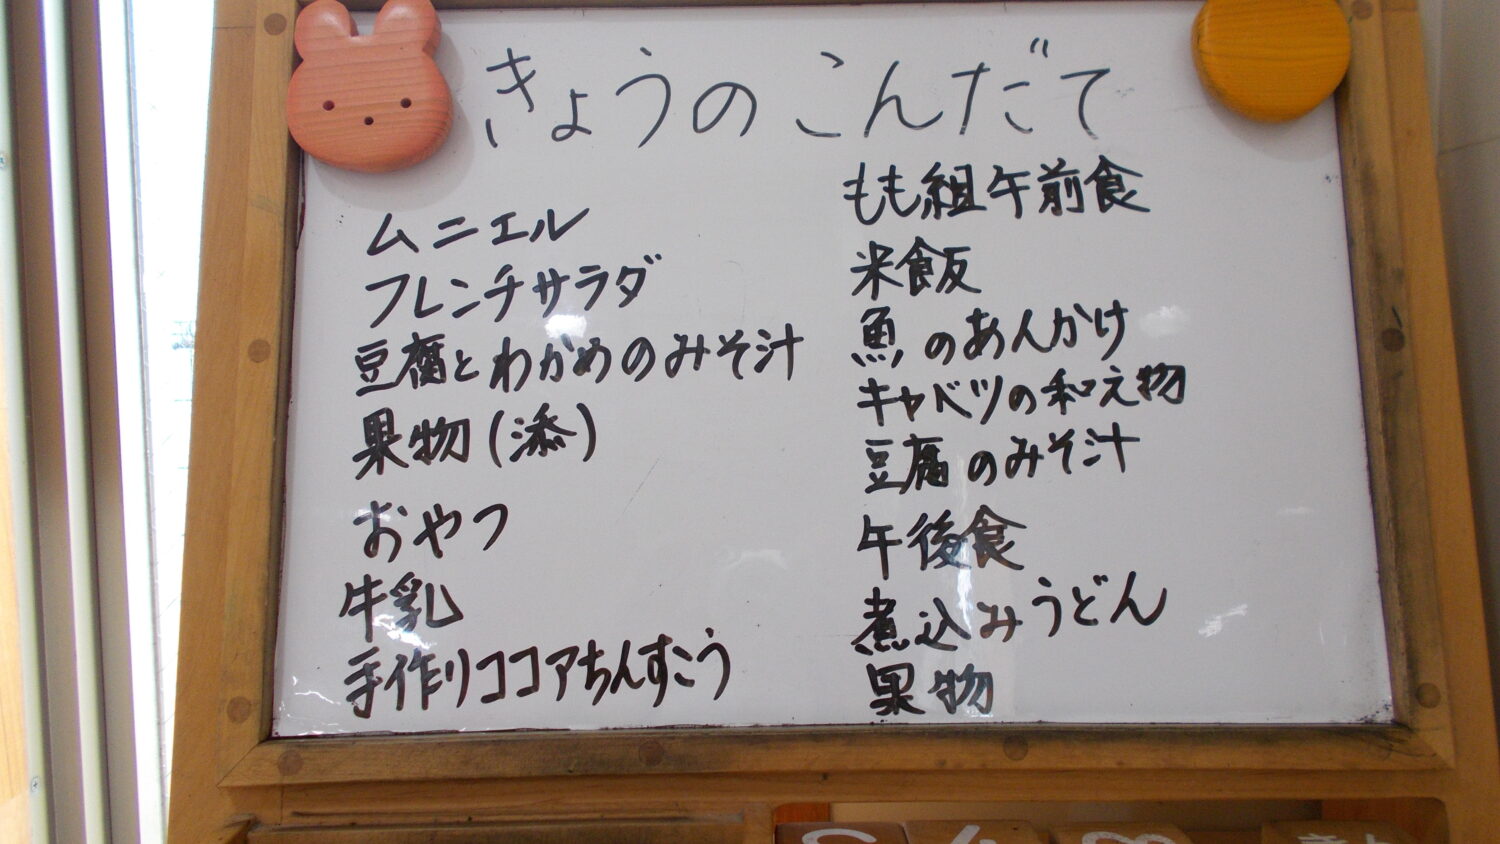 きょうのこんだて
ムニエル
フレンチサラダ
豆腐とわかめのみそ汁
果物(添)
おやつ
牛乳
手作りココアちんすこう
もも組午前食
米飯
魚のあんかけ
キャベツの和え物
豆腐のみそ汁
午後食
煮込みうどん
果物